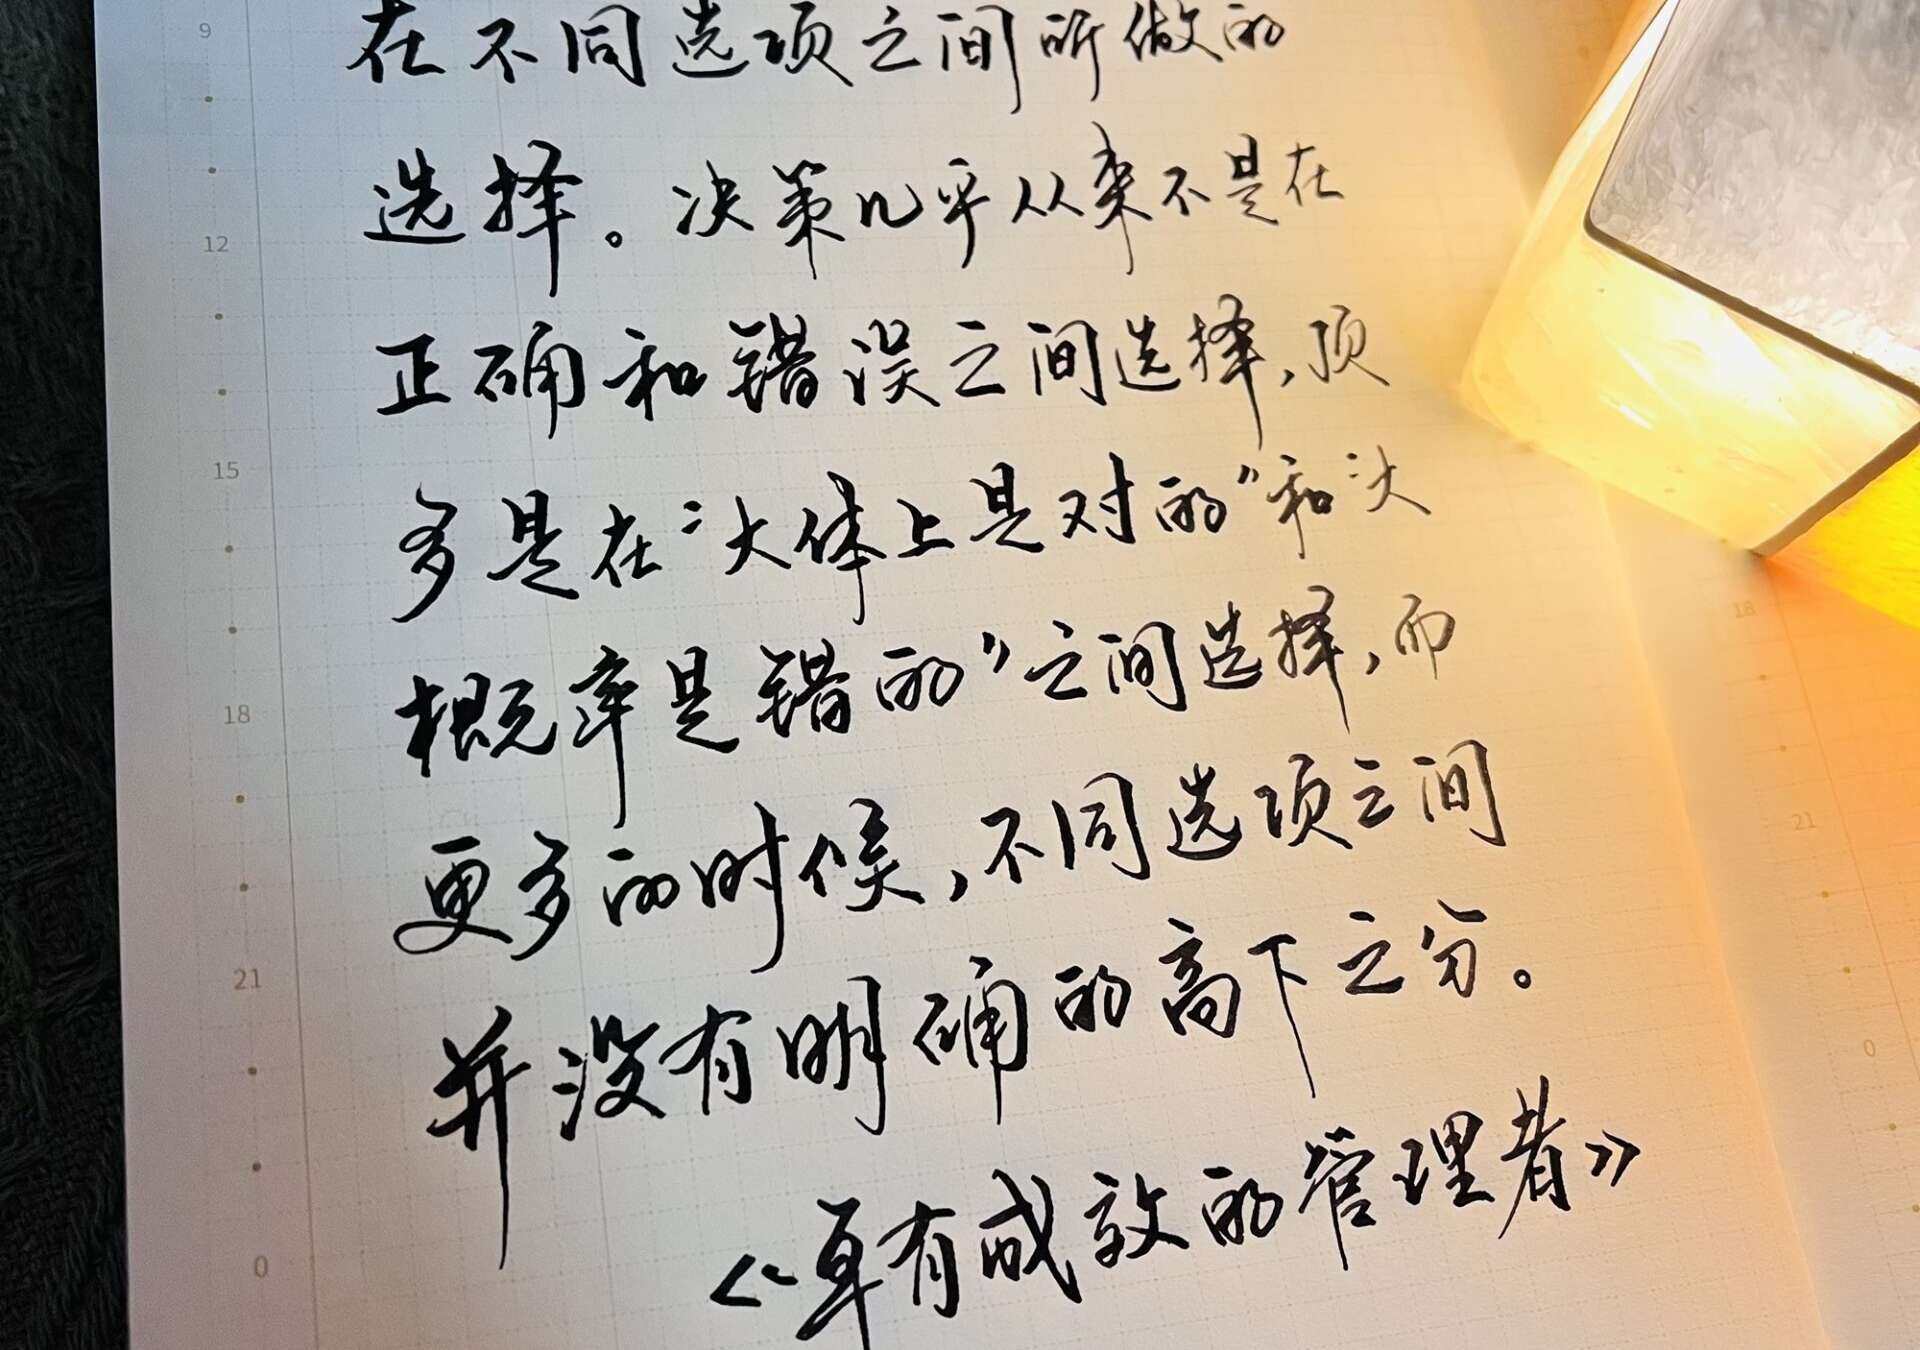 在不同选项之间所做的
选择。决策几乎从来不是在
正确和错误之间选择,顶
多是在“大体上是对的”和“大
概率是错的”之间选择,而
更多的时候,不同选项之间
并没有明确的高下之分。
《卓有成效的管理者》
9
12
15
18
21
0
18
21
0